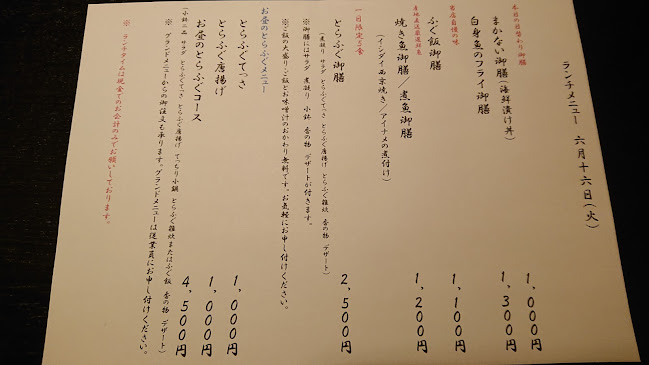 ランチメニュー 六月十六日(火)
本日の日替わり御膳
まかない御膳(海鮮漬け丼) 1,000円
白身魚のフライ御膳 1,300円
当店自慢の味
ふく飯御膳 1,100円
産地直送厳選鮮魚
焼き魚御膳/煮魚御膳 1,200円
(イシダイ西京焼き/アイナメの煮付け)
一日限定5食
とらふぐ御膳 2,500円
(煮凝り サラダ とらふぐてっさ とらふぐ唐揚げ とらふぐ雑炊 香の物 デザート)
※御膳にはサラダ 煮凝り 小鉢 香の物 デザートが付きます。
※ご飯の大盛り・ご飯とお味噌汁のおかわり無料です。お気軽にお申し付けください。
お昼のとらふぐメニュー
とらふぐてっさ 1,000円
とらふぐ唐揚げ 1,000円
お昼のとらふぐコース 4,500円
(小鉢二品 サラダ とらふぐてっさ とらふぐ唐揚げ てっちり小鍋 とらふぐ雑炊またはふく飯 香の物 デザート)
※ グランドメニューからの御注文も承ります。グランドメニューは従業員にお申し付けください。
※ ランチタイムは現金でのお会計のみでお願いしております。